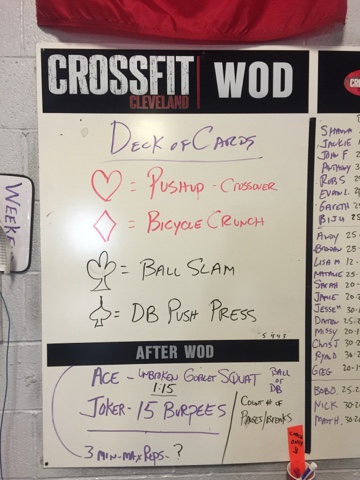 CROSSFIT
CLEVELAND
WOD
DECK OF CARDS
= PUSHUP - CROSSOVER
= BICYCLE CRUNCH
= BALL SLAM
= DB PUSH PRESS
AFTER WOD
ACE - UNBROKEN GOBLET SQUAT BALL OR DB
1:15
JOKER - 15 BURPEES
COUNT # OF
3 MIN - MAX REPS - ?
WEEK
SHAWN
JACKIE
JOHN F
ANTHONY
ROB S
EVAN L
GARETH
BIJU
ANDY 25-
LISA M 12-
NATALIE 25-
SARAH 20-
JAMIE 20-
JESSE
MISSY 20-
CHRIS T 30-
RYAN
GREG 20-
BOBO 25-
NICK 30-
MATT H. 30-